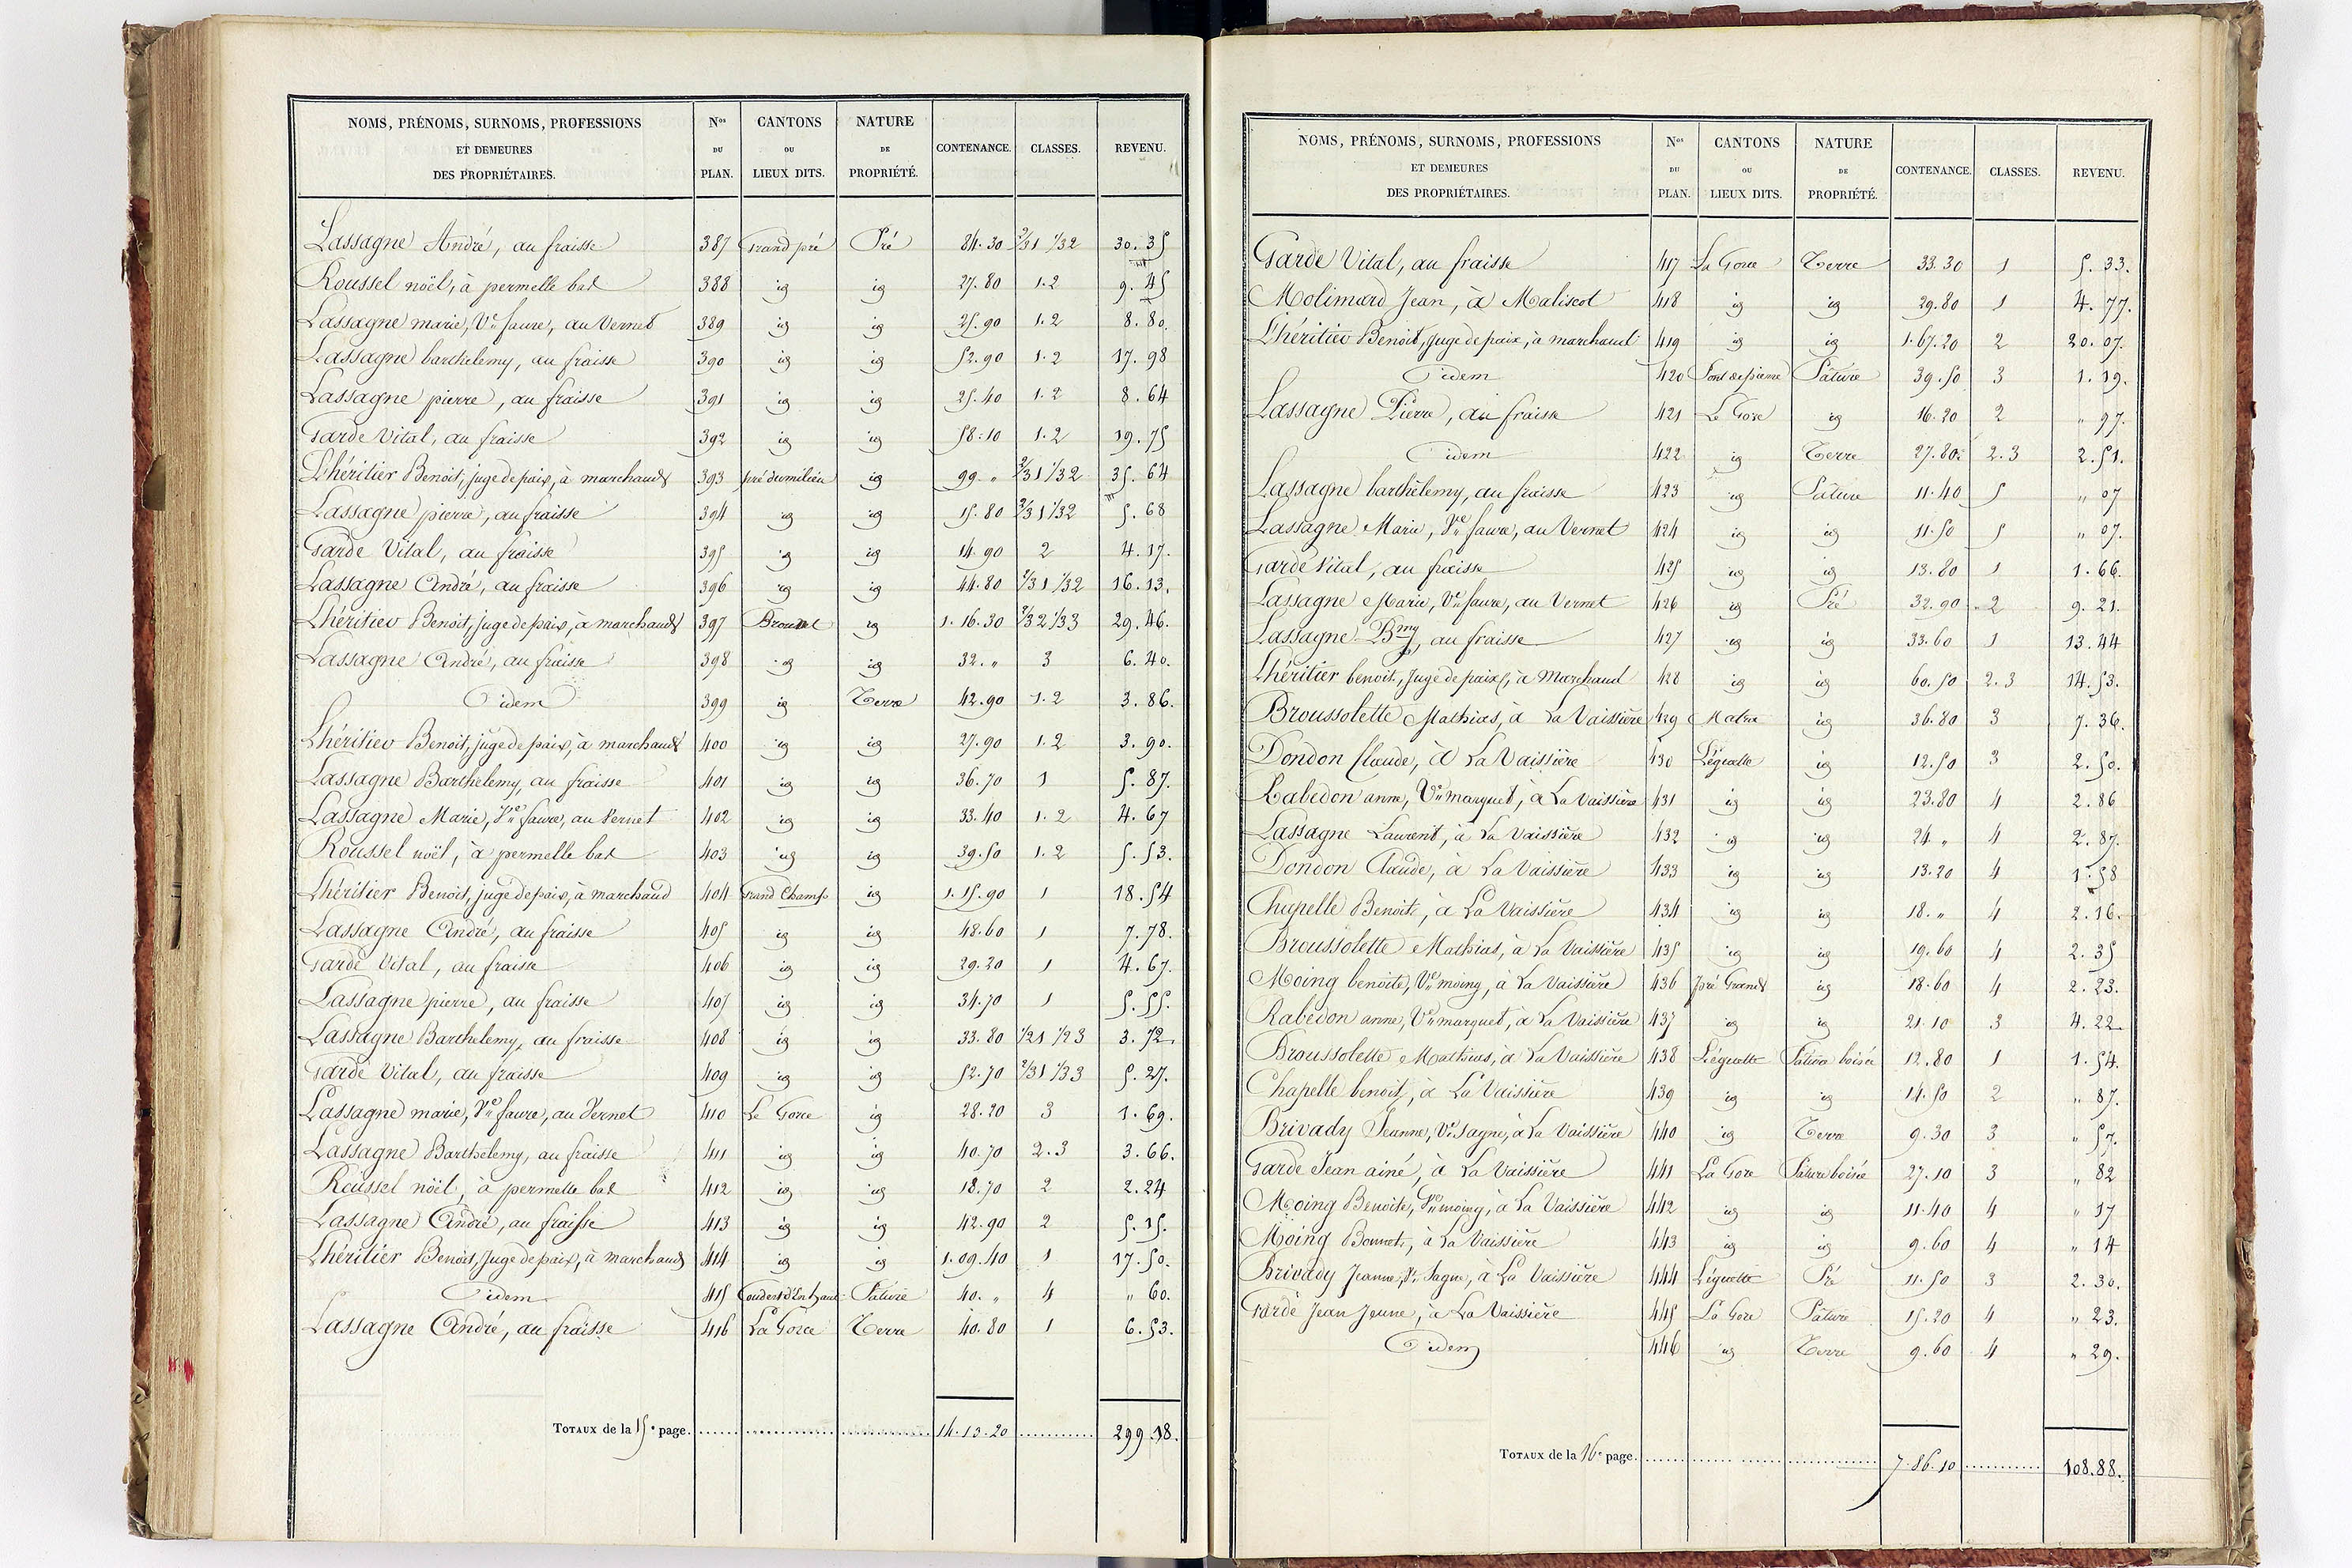 NOMS, PRÉNOMS, SURNOMS, PROFESSIONS ET DEMEURES DES PROPRIÉTAIRES. Nos DU PLAN. CANTONS OU LIEUX DITS. NATURE DE PROPRIÉTÉ. CONTENANCE. CLASSES. REVENU.
Lassagne André, au fraisse 387 Grand pré Pré 84.30 2/31 1/32 30.35
Roussel noël, à permelle bas 388 id id 27.80 1.2 9.45
Lassagne marie, Ve faure, au Vernet 389 id id 25.90 1.2 8.80.
Lassagne barthelemy, au fraisse 390 id id 52.90 1.2 17.98
Lassagne pierre, au fraisse 391 id id 25.40 1.2 8.64
Garde Vital, au fraisse 392 id id 58.10 1.2 19.75
Lhéritier Benoit, juge de paix, à marchaud 393 pré du milieu id 99 „ 2/31 1/32 35.64
Lassagne pierre, au fraisse 394 id id 15.80 2/31 1/32 5.68
Garde Vital, au fraisse 395 id id 14.90 2 4.17.
Lassagne André, au fraisse 396 id id 44.80 2/31 1/32 16.13.
Lhéritier Benoit, juge de paix, à marchaud 397 id 1.16.30 2/32 1/33 29.46.
Lassagne André, au fraisse 398 id id 32. „ 3 6.40.
idem 399 id Terre 42.90 1.2 3.86.
Lhéritier Benoit, juge de paix, à marchaud 400 id id 27.90 1.2 3.90.
Lassagne Barthelemy, au fraisse 401 id id 36.70 1 5.87.
Lassagne Marie, Ve faure, au Vernet 402 id id 33.40 1.2 4.67
Roussel noël, à permelle bas 403 id id 39.50 1.2 5.53.
Lhéritier Benoit, juge de paix, à marchaud 404 Grand Champ id 1.15.90 1 18.54
Lassagne André, au fraisse 405 id id 48.60 1 7.78.
Garde Vital, au fraisse 406 id id 29.20 1 4.67.
Lassagne pierre, au fraisse 407 id id 34.70 1 5.55.
Lassagne Barthelemy, au fraisse 408 id id 33.80 1/21 1/23 3.72.
Garde Vital, au fraisse 409 id id 52.70 2/31 1/33 5.27.
Lassagne marie, Ve faure, au Vernet 410 La Gorce id 28.20 3 1.69.
Lassagne Barthelemy, au fraisse 411 id id 40.70 2.3 3.66.
Roussel nöel, à permelle bas 412 id id 18.70 2 2.24
Lassagne André, au fraisse 413 id id 42.90 2 5.15.
Lhéritier Benoit, Juge de paix, à marchaud 414 id id 1.09.40 1 17.50.
idem 415 Couderd'En haut Pâture 40. „ 4 „ 60.
Lassagne André, au fraisse 416 La Gorce Terre 40.80 1 6.53.
TOTAUX de la 15e page. 14.13.20 299.18.
NOMS, PRÉNOMS, SURNOMS, PROFESSIONS ET DEMEURES DES PROPRIÉTAIRES. Nos DU PLAN. CANTONS OU LIEUX DITS. NATURE DE PROPRIÉTÉ. CONTENANCE. CLASSES. REVENU.
Garde Vital, au fraisse 417 La Gorce Terre 33.30 1 5.33.
Molimard Jean, à Maliscot 418 id id 29.80 1 4.77.
Lhéritier Benoit, Juge de paix, à marchaud 419 id id 1.67.20 2 20.07.
idem 420 Font de pierre Pâture 39.50 3 1.19.
Lassagne Pierre, au fraisse 421 La Gorce id 16.20 2 „ 97.
idem 422 id Terre 27.80 2.3 2.51.
Lassagne barthelemy, au fraisse 423 id Pâture 11.40 5 „ 07
Lassagne Marie, Ve faure, au Vernet 424 id id 11.50 5 „ 07.
Garde Vital, au fraisse 425 id id 13.80 1 1.66.
Lassagne Marie, Ve faure, au Vernet 426 id Pré 32.90 2 9.21.
Lassagne Bmy, au fraisse 427 id id 33.60 1 13.44
Lhéritier benoit, Juge de paix, à Marchaud 428 id id 60.50 2.3 14.53.
Broussolette Mathias, à La Vaissière 429 id 36.80 3 7.36.
Dondon Claude, à La Vaissière 430 Léguette id 12.50 3 2.50.
Rabedon anne, Ve marquet, à La Vaissière 431 id id 23.80 4 2.86
Lassagne Laurent, à La Vaissière 432 id id 24 „ 4 2.87.
Dondon Claude, à La Vaissière 433 id id 13.20 4 1.58
Chapelle Benoit, à La Vaissière 434 id id 18. „ 4 2.16.
Broussolette Mathias, à La Vaissière 435 id id 19.60 4 2.35
Moing benoite, Ve moing, à La Vaissière 436 pré Grand id 18.60 4 2.23.
Rabedon anne, Ve marquet, à La Vaissière 437 id id 21.10 3 4.22.
Broussolette Mathias, à La Vaissière 438 Léguette Pâture boisée 12.80 1 1.54.
Chapelle benoit, à La Vaissière 439 id id 14.50 2 „ 87.
Brivady Jeanne, Ve Sagne, à La Vaissière 440 id Terre 9.30 3 „ 57.
Garde Jean ainé, à La Vaissière 441 La Gore Pâture boisée 27.10 3 „ 82
Moing Benoite, Ve moing, à La Vaissière 442 id id 11.40 4 „ 17
Moing Bonnet, à La Vaissière 443 id id 9.60 4 „ 14
Brivady Jeanne, Ve Sagne, à La Vaissière 444 Léguette Pré 11.50 3 2.30.
Garde Jean Jeune, à La Vaissière 445 La Gore Pâture 15.20 4 „ 23.
idem 446 id Terre 9.60 4 „ 29.
TOTAUX de la 16e page. 7.86.10 108.88.